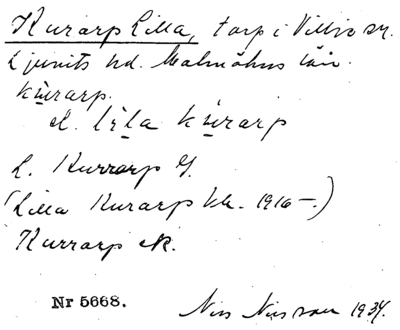 Kurarp Lilla, torp i Villie sn.
Ljunits hd. Malmöhus län.
kùrarp.
el. lìla kùrarp
L. Kurrarp G.
(Lilla Kurarp kb. 1916–.)
Kurrarp ek.
Nr 5668. Nils Nilsson 1934.